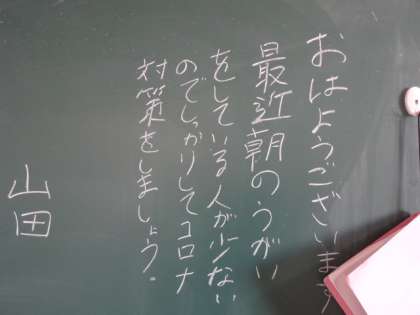 おはようございます
最近朝のうがい
をしている人が少ない
のでしっかりしてコロナ
対策をしましょう。
山田